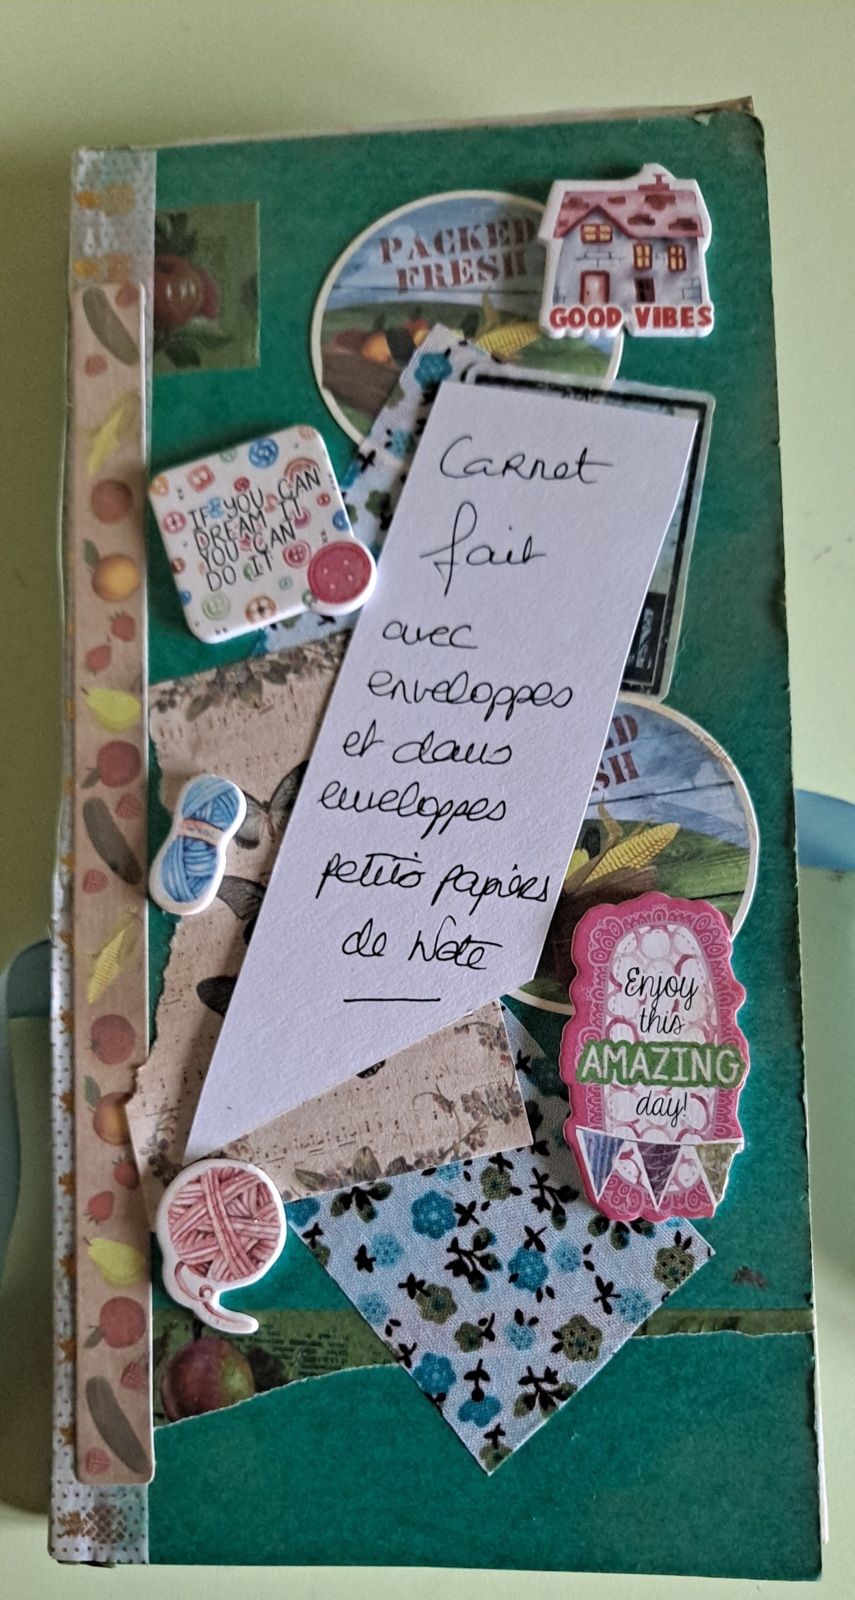 PACKED
FRESH
GOOD VIBES
IF YOU CAN
DREAM IT
YOU CAN
DO IT
Carnet
fait
avec
enveloppes
et dans
enveloppes
petits papiers
de Note
ED
SH
Enjoy
this
AMAZING
day!